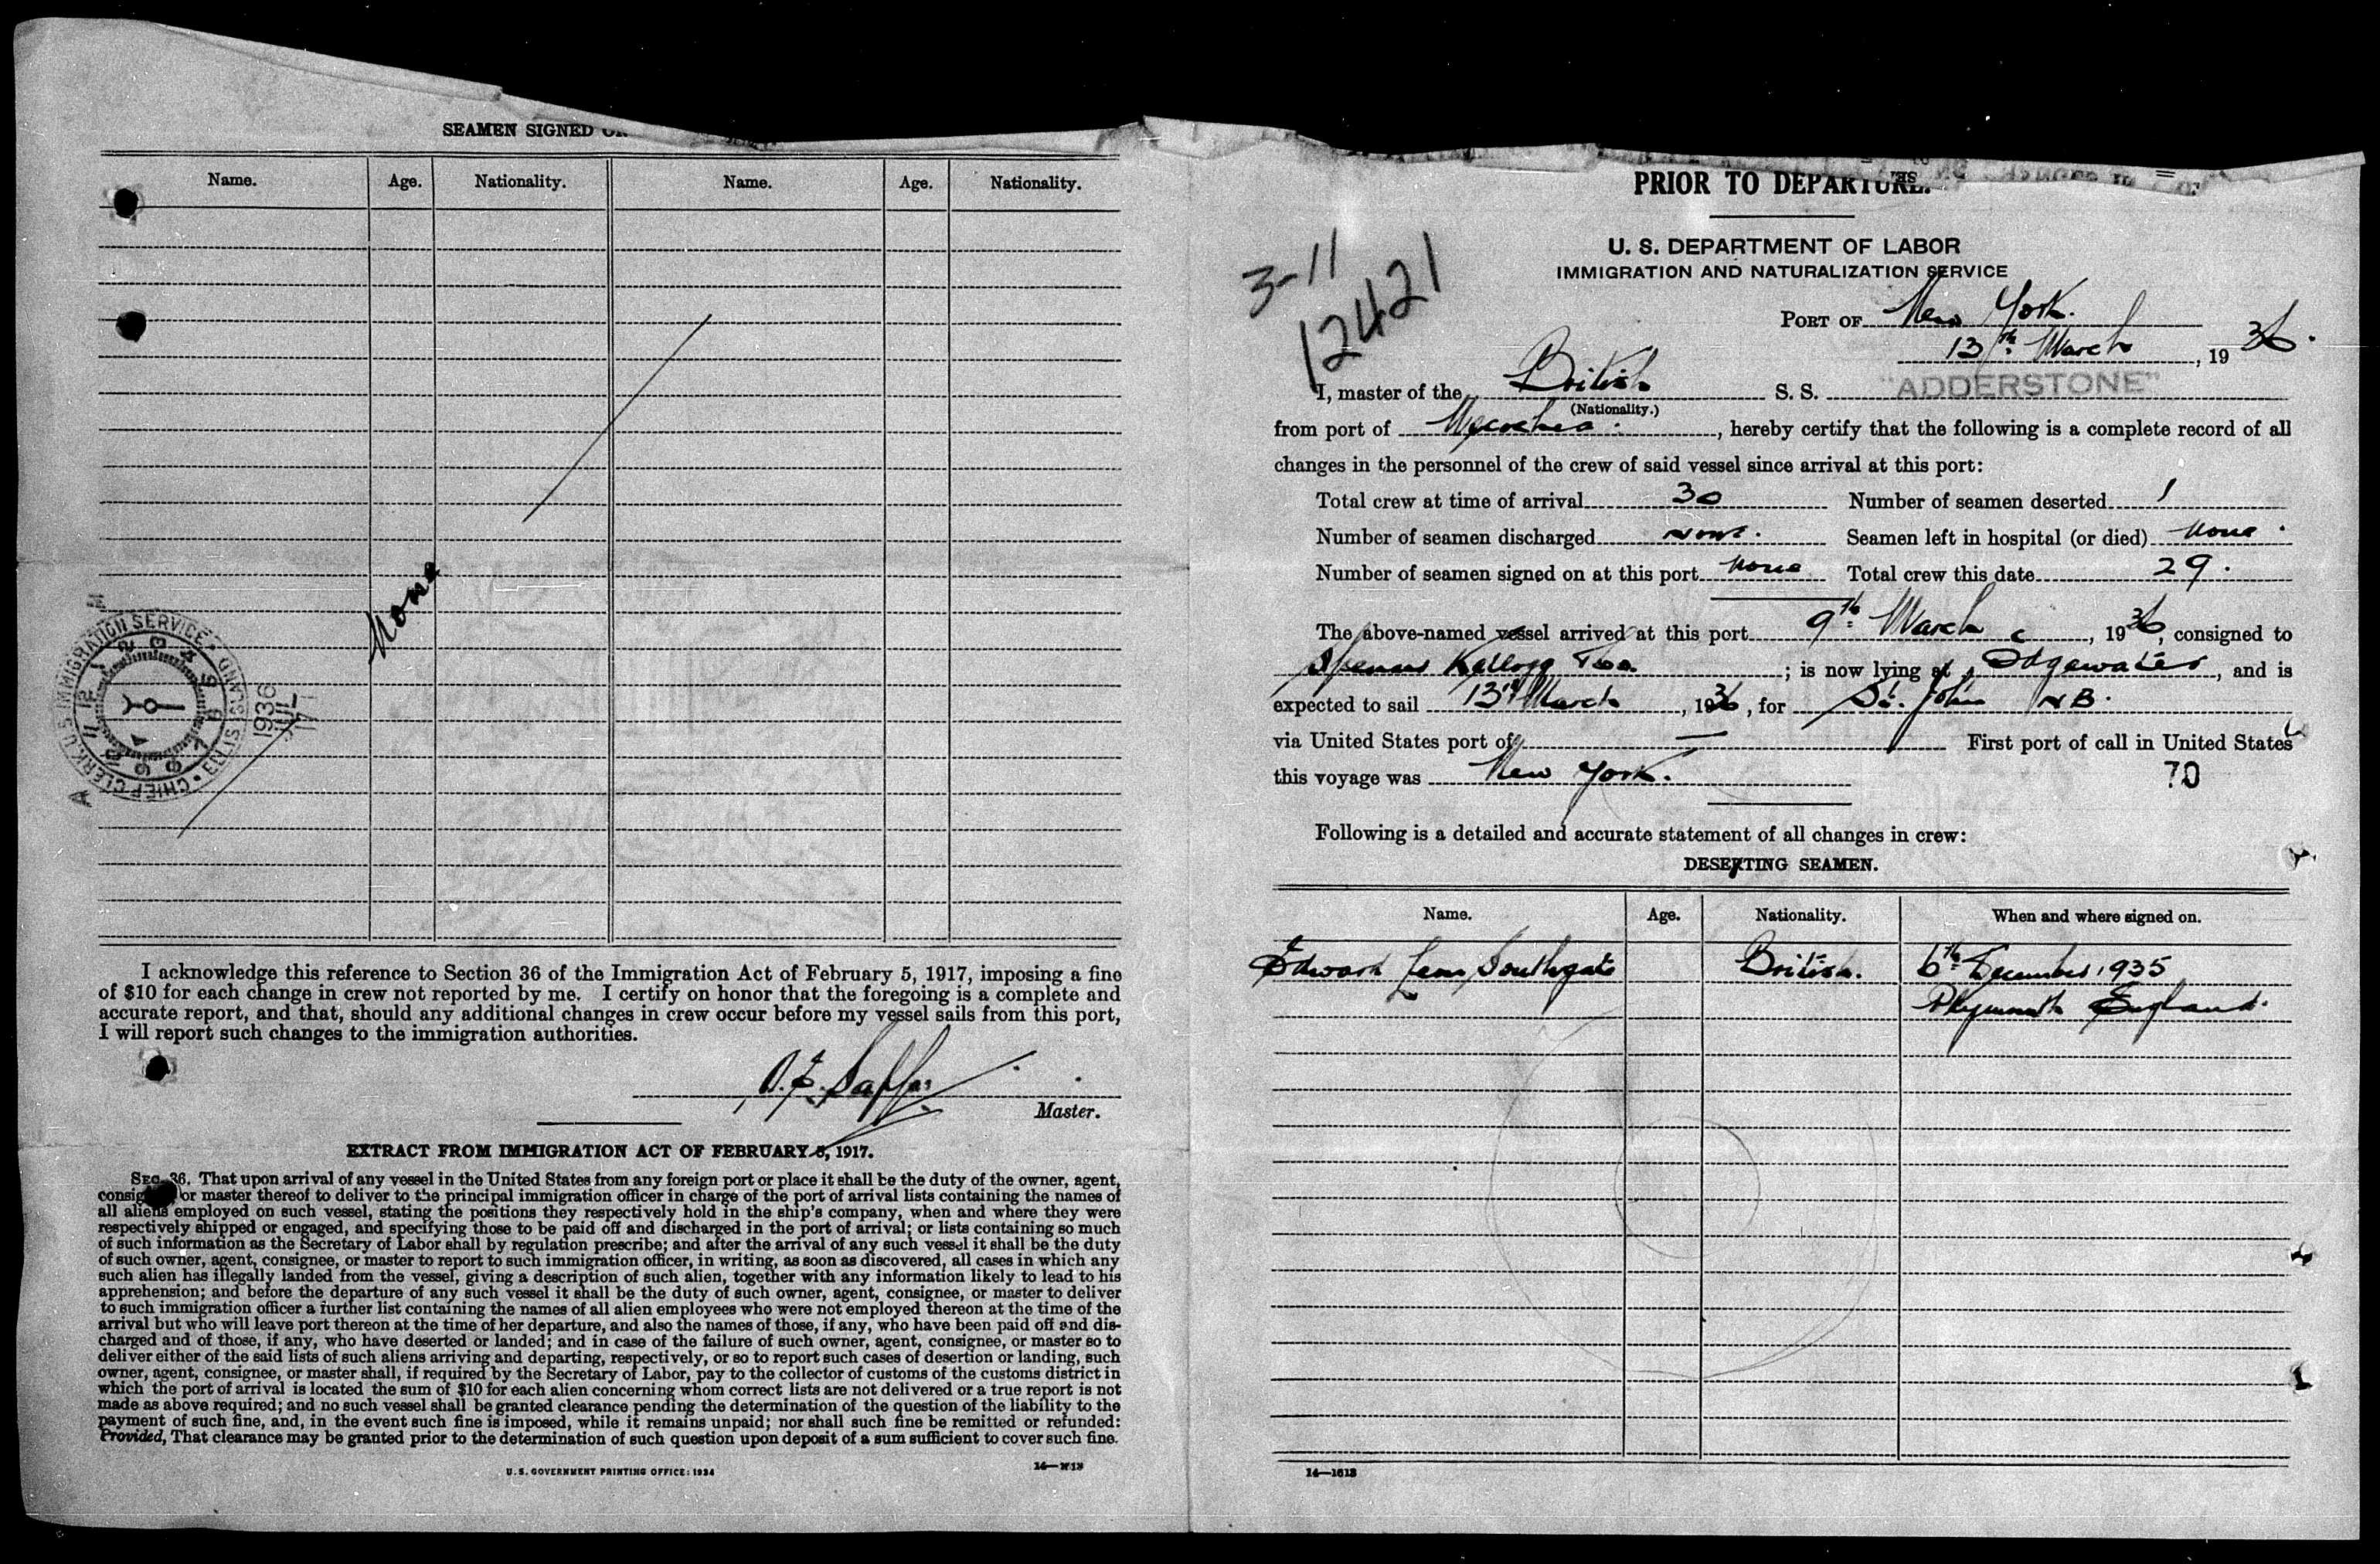 SEAMEN SIGNED
Name. Age. Nationality. Name. Age. Nationality.
None
U.S. IMMIGRATION SERVICE
CHIEF CLERK
1936
I acknowledge this reference to Section 36 of the Immigration Act of February 5, 1917, imposing a fine
of $10 for each change in crew not reported by me. I certify on honor that the foregoing is a complete and
accurate report, and that, should any additional changes in crew occur before my vessel sails from this port,
I will report such changes to the immigration authorities.
Master.
EXTRACT FROM IMMIGRATION ACT OF FEBRUARY 5, 1917.
SEC. 36. That upon arrival of any vessel in the United States from any foreign port or place it shall be the duty of the owner, agent,
or master thereof to deliver to the principal immigration officer in charge of the port of arrival lists containing the names of
all aliens employed on such vessel, stating the positions they respectively hold in the ship's company, when and where they were
respectively shipped or engaged, and specifying those to be paid off and discharged in the port of arrival; or lists containing so much
of such information as the Secretary of Labor shall by regulation prescribe; and after the arrival of any such vessel it shall be the duty
of such owner, agent, consignee, or master to report to such immigration officer, in writing, as soon as discovered, all cases in which any
such alien has illegally landed from the vessel, giving a description of such alien, together with any information likely to lead to his
apprehension; and before the departure of any such vessel it shall be the duty of such owner, agent, consignee, or master to deliver
to such immigration officer a further list containing the names of all alien employees who were not employed thereon at the time of the
arrival but who will leave port thereon at the time of her departure, and also the names of those, if any, who have been paid off and dis-
charged and of those, if any, who have deserted or landed; and in case of the failure of such owner, agent, consignee, or master so to
deliver either of the said lists of such aliens arriving and departing, respectively, or so to report such cases of desertion or landing, such
owner, agent, consignee, or master shall, if required by the Secretary of Labor, pay to the collector of customs of the customs district in
which the port of arrival is located the sum of $10 for each alien concerning whom correct lists are not delivered or a true report is not
made as above required; and no such vessel shall be granted clearance pending the determination of the question of the liability to the
payment of such fine, and, in the event such fine is imposed, while it remains unpaid; nor shall such fine be remitted or refunded:
Provided, That clearance may be granted prior to the determination of such question upon deposit of a sum sufficient to cover such fine.
U.S. GOVERNMENT PRINTING OFFICE: 1934
PRIOR TO DEPARTURE.
U. S. DEPARTMENT OF LABOR
IMMIGRATION AND NATURALIZATION SERVICE
3-11
12421
PORT OF New York.
13th March, 1936.
I, master of the British S. S. "ADDERSTONE"
(Nationality.)
from port of , hereby certify that the following is a complete record of all
changes in the personnel of the crew of said vessel since arrival at this port:
Total crew at time of arrival 30 Number of seamen deserted 1
Number of seamen discharged None. Seamen left in hospital (or died) None.
Number of seamen signed on at this port None Total crew this date 29.
The above-named vessel arrived at this port 9th March, 1936, consigned to
Spencer Kellogg ; is now lying at Edgewater, and is
expected to sail 13th March, 1936, for St. John NB.
via United States port of — First port of call in United States
this voyage was New York.
70
Following is a detailed and accurate statement of all changes in crew:
DESERTING SEAMEN.
Name. Age. Nationality. When and where signed on.
Edward Southgate British. 6th December 1935
Plymouth England.
14—1613